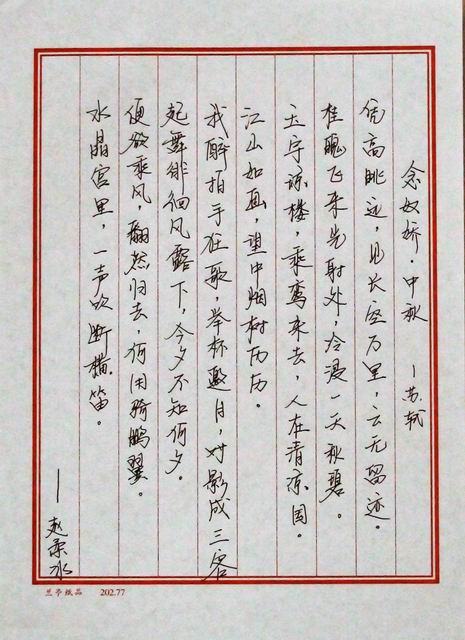 念奴娇·中秋
—苏轼
凭高眺远，见长空万里，云无留迹。
桂魄飞来光射处，冷浸一天秋碧。
玉宇琼楼，乘鸾来去，人在清凉国。
江山如画，望中烟树历历。
我醉拍手狂歌，举杯邀月，对影成三客
起舞徘徊风露下，今夕不知何夕。
便欲乘风，翻然归去，何用骑鹏翼。
水晶宫里，一声吹断横笛。
——赵 水
兰亭纸品 202.77